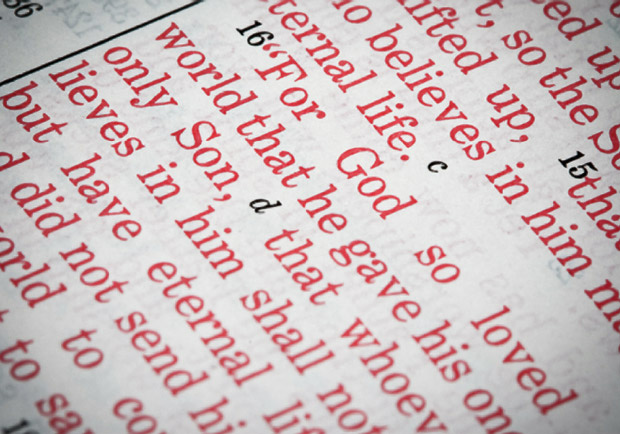 86
ted up
t, so the So
ifted up, 15tha
o believes in him m
ternal life. c
16"For God so loved
world that he gave his one
only Son, d that whoev
lieves in him shall not
but have eternal lif
d did not send hi
orld to co
to sa